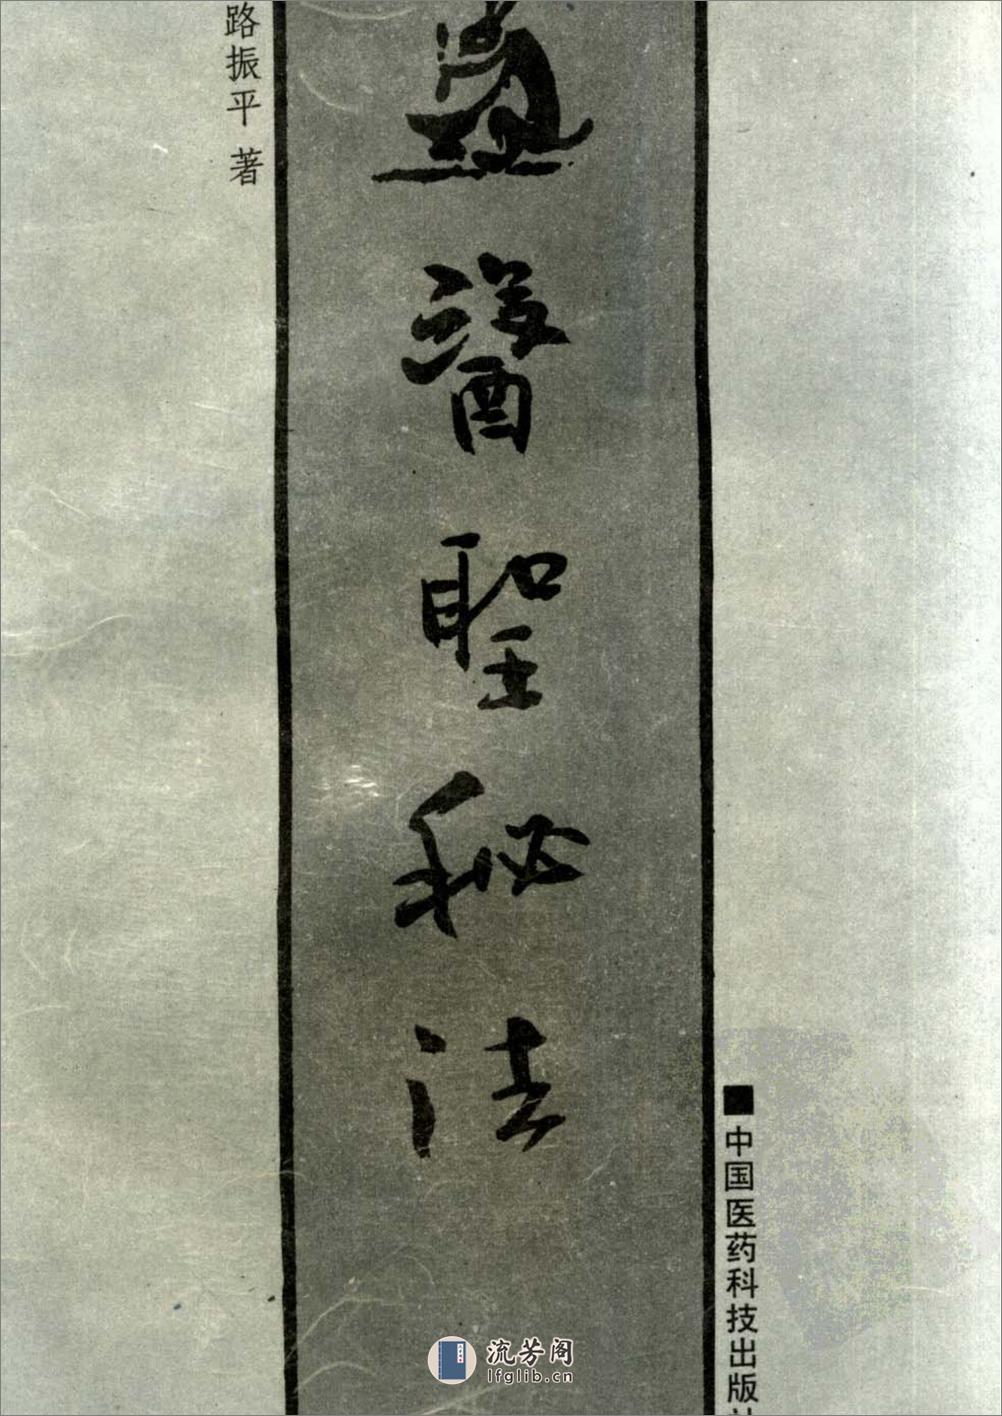 路振平 著
醫聖秘法
中国医药科技出版
流芳阁
lfglib.cn